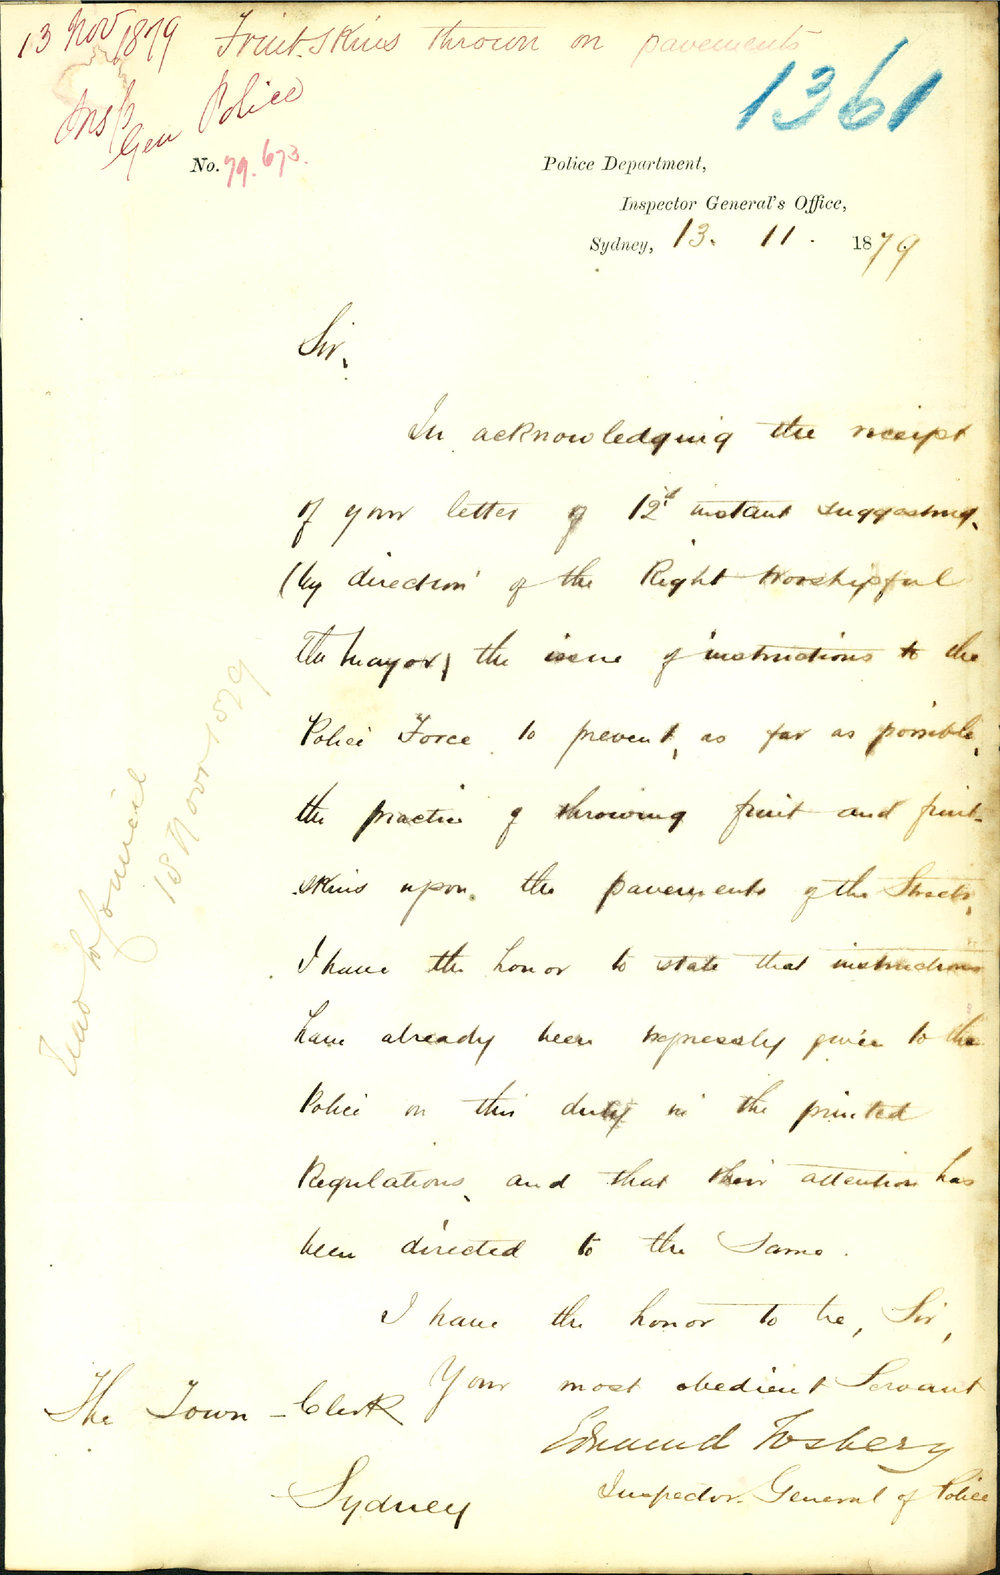 13 Nov 1879 Fruit skins thrown on pavements
1361
Insp Gen Police
No. 79.673.
Police Department,
Inspector General's Office,
Sydney, 13. 11. 1879
Sir,
In acknowledging the receipt
of your letter of 12th instant suggesting,
(by direction of the Right Worshipful
the Mayor) the issue of instructions to the
Police Force to prevent, as far as possible,
the practice of throwing fruit and fruit-
skins upon the pavements of the Streets,
I have the honor to state that instructions
have already been expressly given to the
Police on this duty in the printed
Regulations, and that their attention has
been directed to the same.
I have the honor to be, Sir,
Your most obedient Servant
Edmund Fosbery
Inspector General of Police
The Town Clerk
Sydney
Read to Council
18 Novr 1879